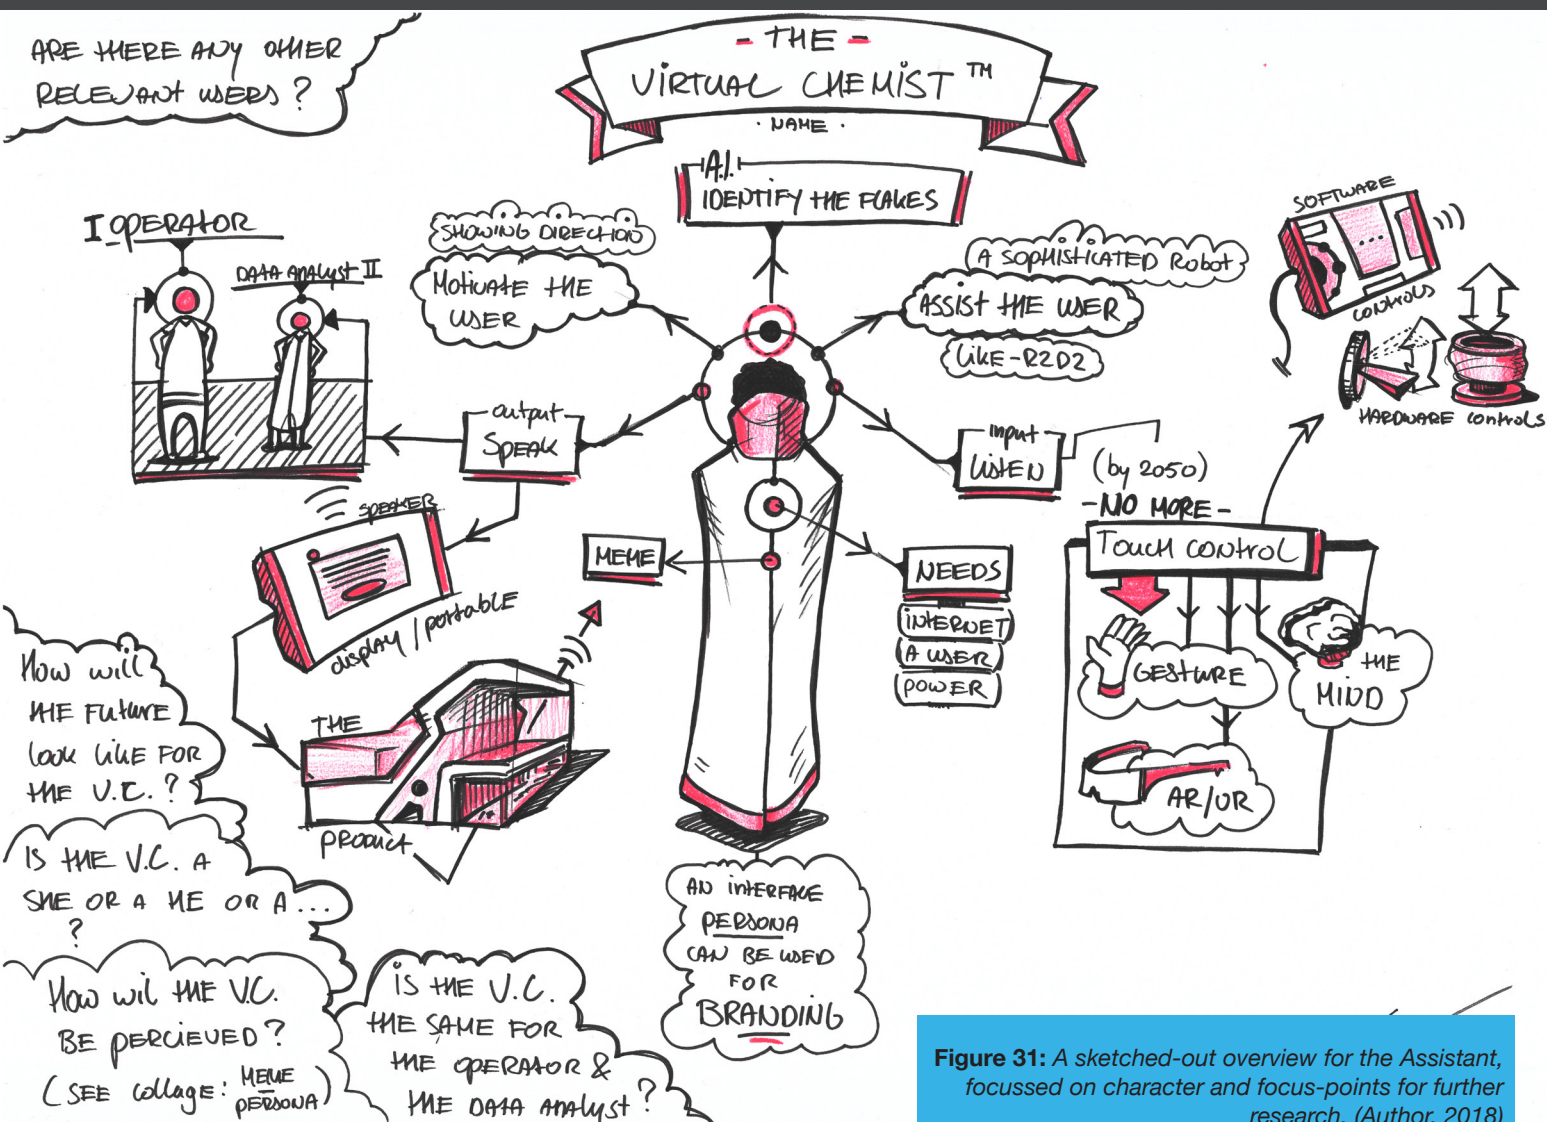 ARE THERE ANY OTHER
RELEVANT USERS?
- THE -
VIRTUAL CHEMIST ™
· NAME ·
A.I.
IDENTIFY THE FLAKES
I OPERATOR
DATA ANALYST II
SHOWING DIRECTION
MOTIVATE THE
USER
A SOPHISTICATED ROBOT
ASSIST THE USER
LIKE-R2D2
SOFTWARE
CONTROLS
HARDWARE CONTROLS
OUTPUT
SPEAK
INPUT
LISTEN
(by 2050)
- NO MORE -
TOUCH CONTROL
SPEAKER
display / portable
MEME
NEEDS
(INTERNET)
(A USER)
(POWER)
GESTURE
THE
MIND
AR/VR
THE
PRODUCT
How will
THE FUTURE
look LIKE FOR
THE V.C.?
IS THE V.C. A
SHE OR A HE OR A...
?
How wil THE V.C.
BE PERCIEVED?
(SEE collage: MEME
PERSONA)
IS THE V.C.
THE SAME FOR
THE OPERATOR &
THE DATA ANALYST?
AN INTERFACE
PERSONA
CAN BE USED
FOR
BRANDING
Figure 31: A sketched-out overview for the Assistant,
focussed on character and focus-points for further
research. (Author, 2018)